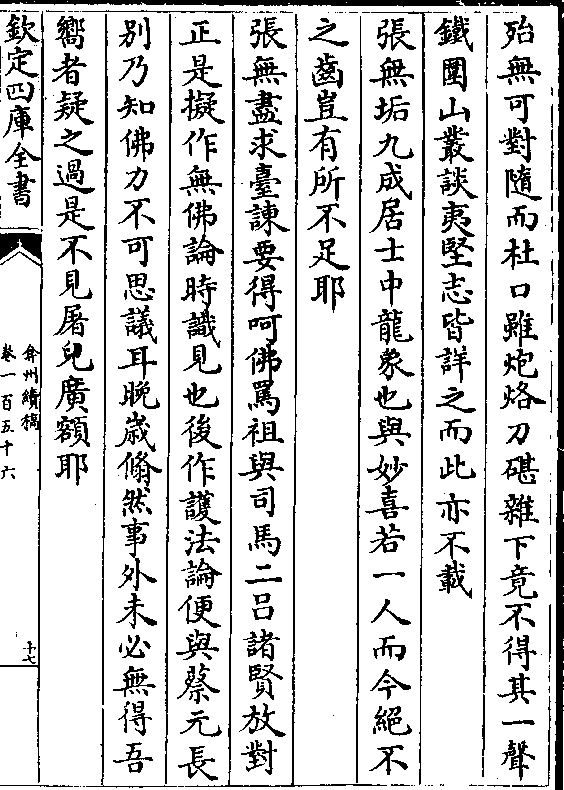 殆無可對隨而杜口雖炮烙刀碪雜下竟不得其一聲
鐵圍山叢談夷堅志皆詳之而此亦不載
張無垢九成居士中龍象也與妙喜若一人而今絕不
之齒豈有所不足耶
張無盡求臺諫要得呵佛罵祖與司馬二吕諸賢放對
正是擬作無佛論時識見也後作護法論便與蔡元長
别乃知佛力不可思議耳晚歲翛然事外未必無得吾
嚮者疑之過是不見屠兒廣額耶
欽定四庫全書
弇州續稿
卷一百五十六
十七